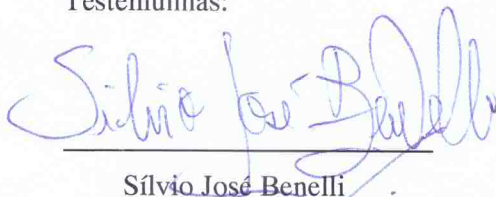 Testemunhas:
Silvio José Benelli
Sílvio José Benelli